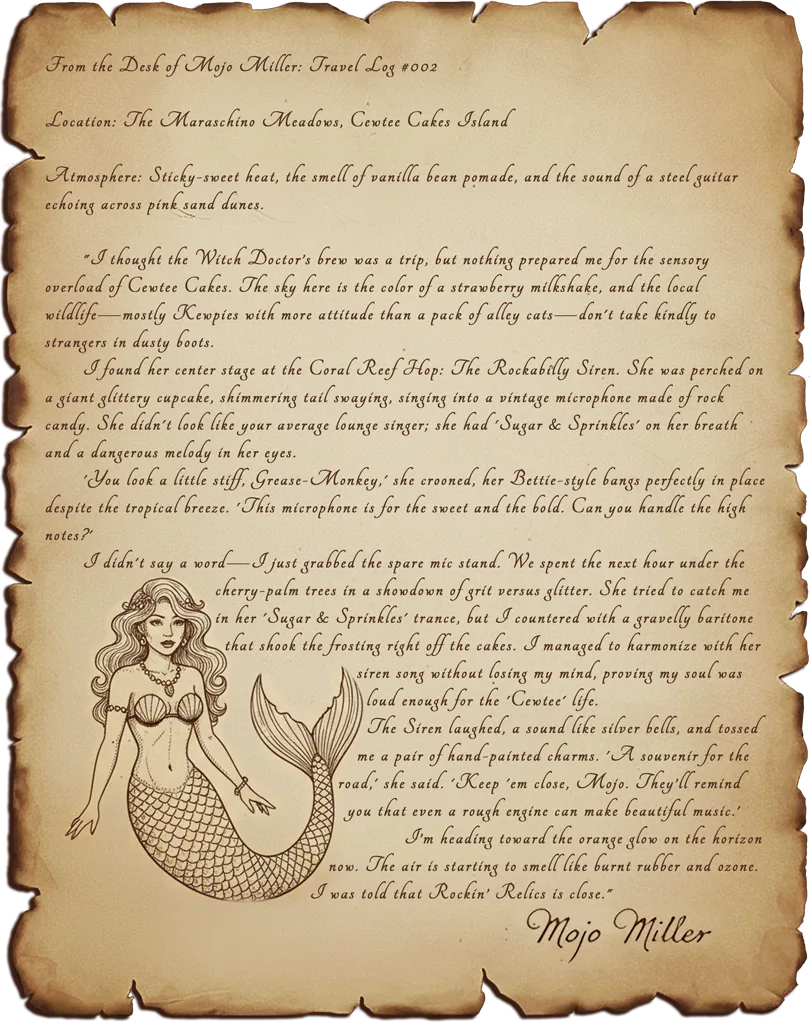 From the Desk of Mojo Miller: Travel Log #002
Location: The Maraschino Meadows, Cewtee Cakes Island
Atmosphere: Sticky-sweet heat, the smell of vanilla bean pomade, and the sound of a steel guitar
echoing across pink sand dunes.
"I thought the Witch Doctor's brew was a trip, but nothing prepared me for the sensory
overload of Cewtee Cakes. The sky here is the color of a strawberry milkshake, and the local
wildlife—mostly Kewpies with more attitude than a pack of alley cats—don't take kindly to
strangers in dusty boots.
I found her center stage at the Coral Reef Hop: The Rockabilly Siren. She was perched on
a giant glittery cupcake, shimmering tail swaying, singing into a vintage microphone made of rock
candy. She didn't look like your average lounge singer; she had 'Sugar & Sprinkles' on her breath
and a dangerous melody in her eyes.
'You look a little stiff, Grease-Monkey,' she crooned, her Bettie-style bangs perfectly in place
despite the tropical breeze. 'This microphone is for the sweet and the bold. Can you handle the high
notes?'
I didn't say a word—I just grabbed the spare mic stand. We spent the next hour under the
cherry-palm trees in a showdown of grit versus glitter. She tried to catch me
in her 'Sugar & Sprinkles' trance, but I countered with a gravelly baritone
that shook the frosting right off the cakes. I managed to harmonize with her
siren song without losing my mind, proving my soul was
loud enough for the 'Cewtee' life.
The Siren laughed, a sound like silver bells, and tossed
me a pair of hand-painted charms. 'A souvenir for the
road,' she said. 'Keep 'em close, Mojo. They'll remind
you that even a rough engine can make beautiful music.'
I'm heading toward the orange glow on the horizon
now. The air is starting to smell like burnt rubber and ozone.
I was told that Rockin' Relics is close."
Mojo Miller